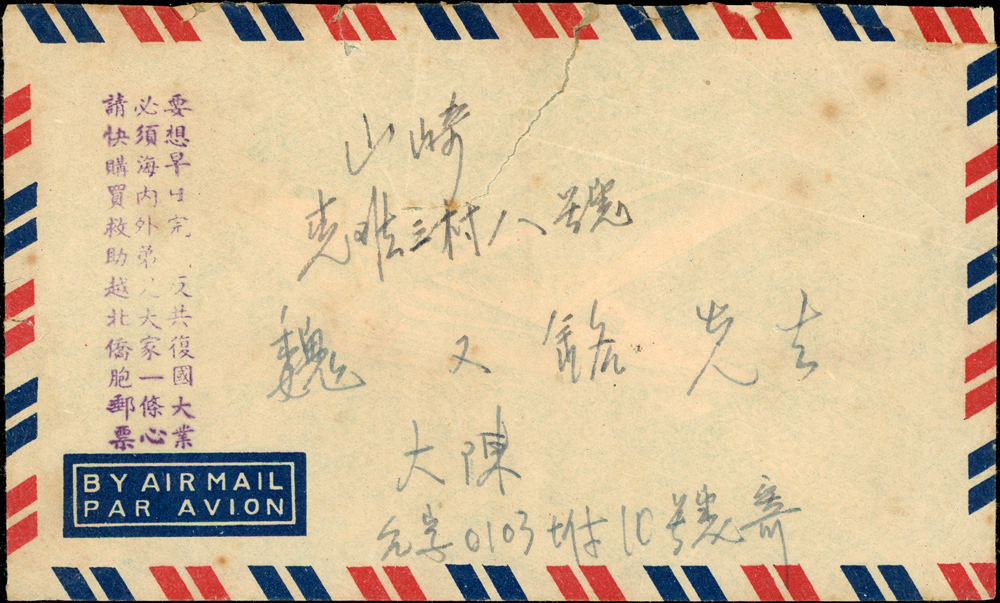 要想早日完反共復國大業
必須海內外弟兄大家一條心
請快購買救助越北僑胞郵票
山崎
克難三村八號
魏又 先生
大陳
字0103附10號寄
BY AIR MAIL
PAR AVION